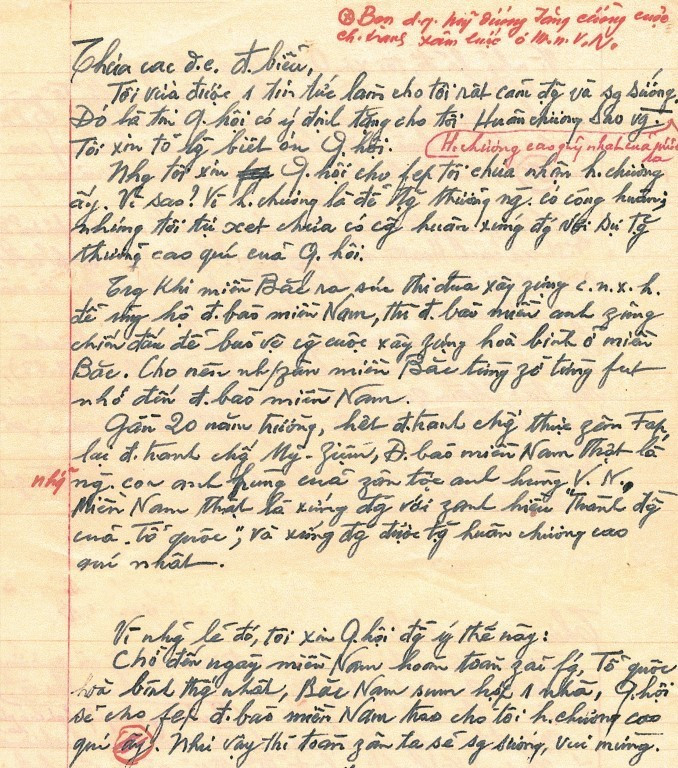 ⊗ Bọn đ.q. Mỹ đương tăng cường cuộc
ch.tranh xâm lược ở m.n.V.N.
Thưa các đ.c. đ.biểu,
Tôi vừa được 1 tin tức làm cho tôi rất cảm đg và sg sướng.
Đó là tin Q.hội có ý định tặng cho tôi Huân chương Sao vg.
Tôi xin tỏ lg biết ơn Q.hội.
H.chương cao quý nhất của nước
ta
Nhg tôi xin Q.hội cho fep tôi chưa nhận h.chương
ấy. Vì sao? Vì h.chương là để tặg thưởng ng. có công huân;
nhưng tôi tự xét chưa có cg huân xứng đg với sự tặg
thưởng cao quí của Q.hội.
Trg khi miền Bắc ra sức thi đua xây zựng c.n.x.h.
để ủng hộ đ.bào miền Nam, thì đ.bào miền anh zũng
chiến đấu để bảo vệ cg cuộc xây zựng hoà bình ở miền
Bắc. Cho nên nh/zân miền Bắc từng zờ từng fut
nhớ đến đ.bào miền Nam.
Gần 20 năm trường, hết đ.tranh chg thực zân Fap,
lại đ.tranh chg Mỹ-Ziệm, Đ.bào miền Nam thật là
nhg
ng. con anh hùng của zân tộc anh hùng V.N.,
Miền Nam thật là xứng đg với zanh hiệu "Thành đg
của Tổ quốc", và xứng đg được tặg huân chương cao
quí nhất.
Vì nhg lẽ đó, tôi xin Q.hội đg ý thế này:
Chờ đến ngày miền Nam hoàn toàn zải fg, Tổ quốc
hoà bình thg nhất, Bắc Nam sum họp 1 nhà, Q.hội
sẽ cho fep đ.bào miền Nam trao cho tôi h.chương cao
quí ấy. Như vậy thì toàn zân ta sẽ sg sướng, vui mừng.